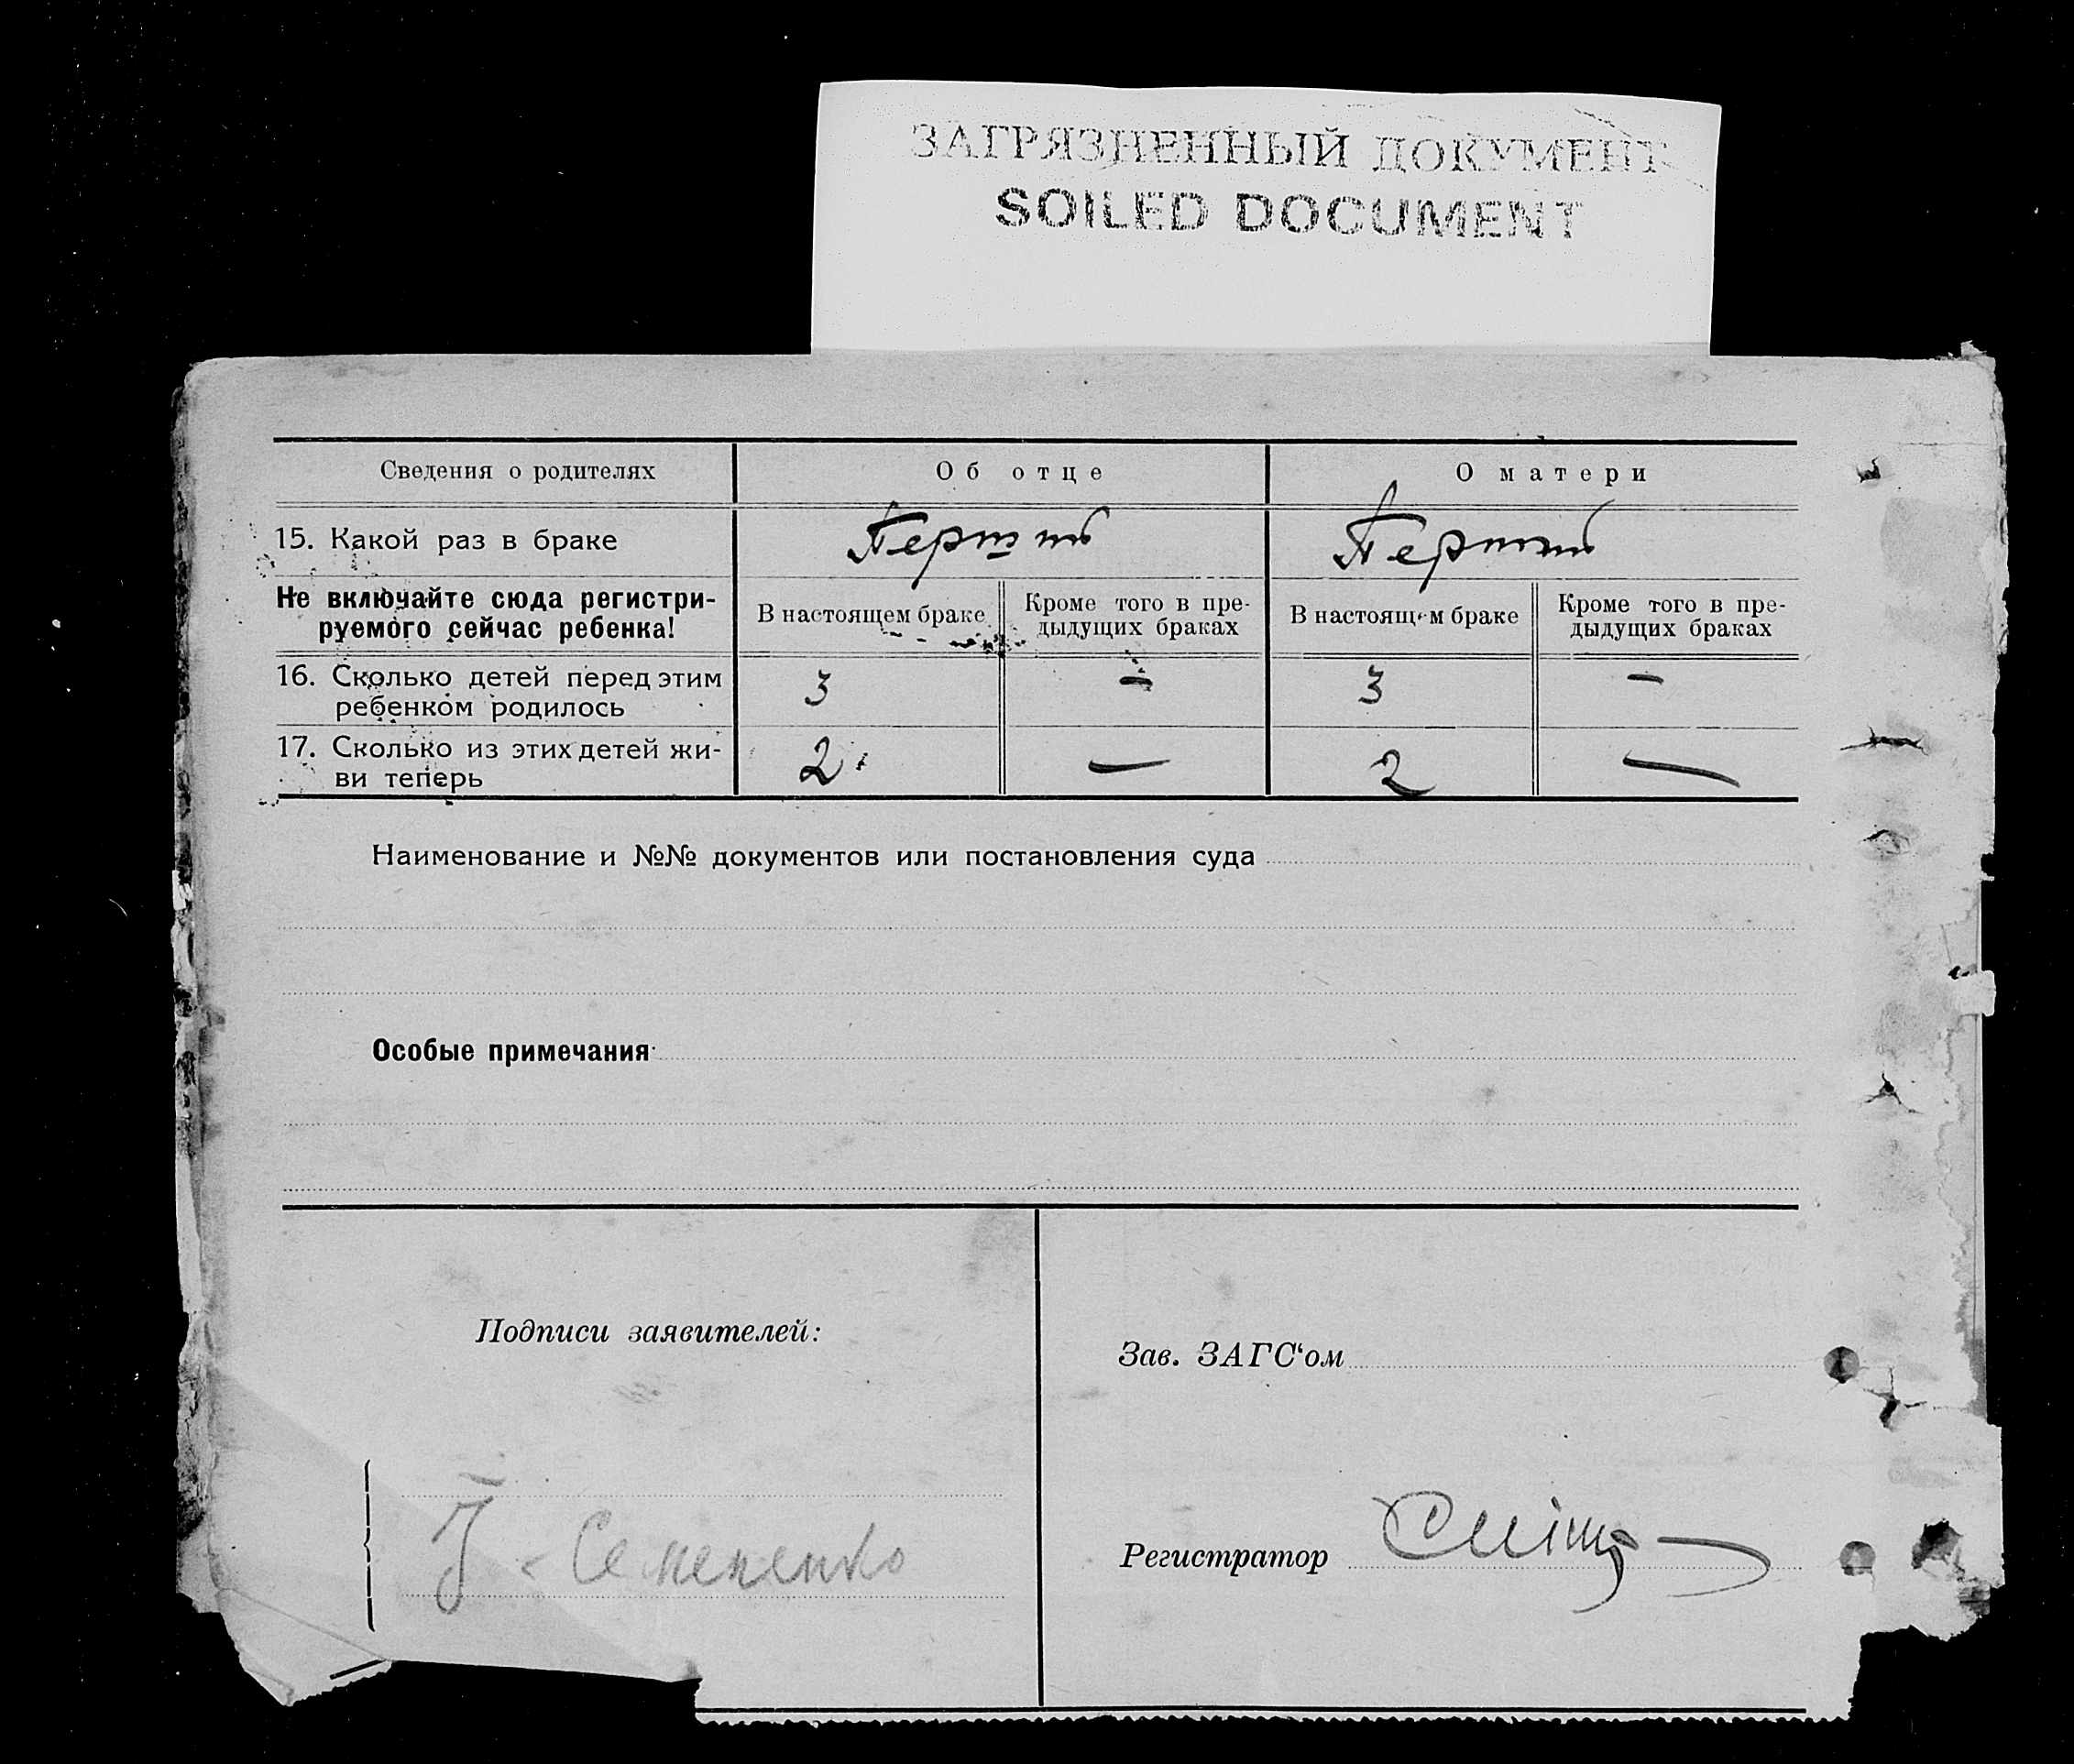 ЗАГРЯЗНЕННЫЙ ДОКУМЕНТ
SOILED DOCUMENT
Сведения о родителях Об отце О матери
15. Какой раз в браке Перший Перший
Не включайте сюда регистри-
руемого сейчас ребенка!
В настоящем браке Кроме того в пре-
дыдущих браках
В настоящем браке Кроме того в пре-
дыдущих браках
16. Сколько детей перед этим
ребенком родилось 3 — 3 —
17. Сколько из этих детей жи-
ви теперь 2 — 2 —
Наименование и №№ документов или постановления суда
Особые примечания
Подписи заявителей:
Зав. ЗАГС‘ом
Семененко
Регистратор